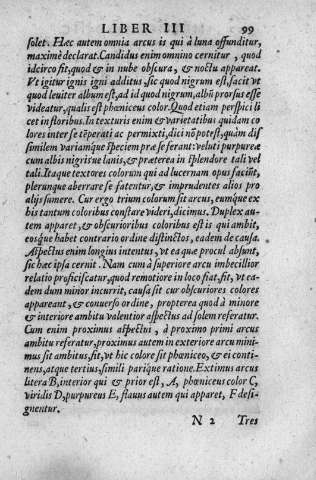 LIBER III 99
solet. Hæc autem omnia arcus is qui à luna offunditur,
maximè declarat. Candidus enim omnino cernitur, quod
idcirco fit, quod & in nube obscura, & noctu appareat.
Vt igitur ignis igni additus, sic quod nigrum est, facit vt
quod leuiter album est, ad id quod nigrum, albũ prorsus esse
videatur, qualis est phœniceus color. Quod etiam perspici li
cet in floribus. In texturis enim & varietatibus quidam co
lores inter se tẽperati ac permixti, dici nõ potest, quàm dis
similem variamq́ue speciem præ se ferant: veluti purpureæ
cum albis nigrisue lanis, & præterea in splendore tali vel
tali. Itaque textores colorum qui ad lucernam opus faciũt,
plerunque aberrare se fatentur, & imprudentes alios pro
alijs sumere. Cur ergo trium colorum sit arcus, eumque ex
his tantum coloribus constare videri, dicimus. Duplex au-
tem apparet, & obscurioribus coloribus est is qui ambit,
eosq́ue habet contrario ordine distinctos, eadem de causa.
Aspectus enim longius intentus, vt ea quæ procul absunt,
sic hæc ipsa cernit. Nam cum à superiore arcu imbecillior
relatio proficiscatur, quod remotiore in loco fiat, fit, vt ea-
dem dum minor incurrit, causa sit cur obscuriores colores
appareant, & conuerso ordine, propterea quod à minore
& interiore ambitu valentior aspectus ad solem referatur.
Cum enim proximus aspectui, à proximo primi arcus
ambitu referatur, proximus autem in exteriore arcu mini-
mus sit ambitus, fit, vt hic colore sit phœniceo, & ei conti-
nens, atque tertius, simili pariq́ue ratione. Extimus arcus
litera B, interior qui & prior est, A, phœniceus color C,
viridis D, purpureus E, flauus autem qui apparet, F desi-
gnentur.
N 2 Tres